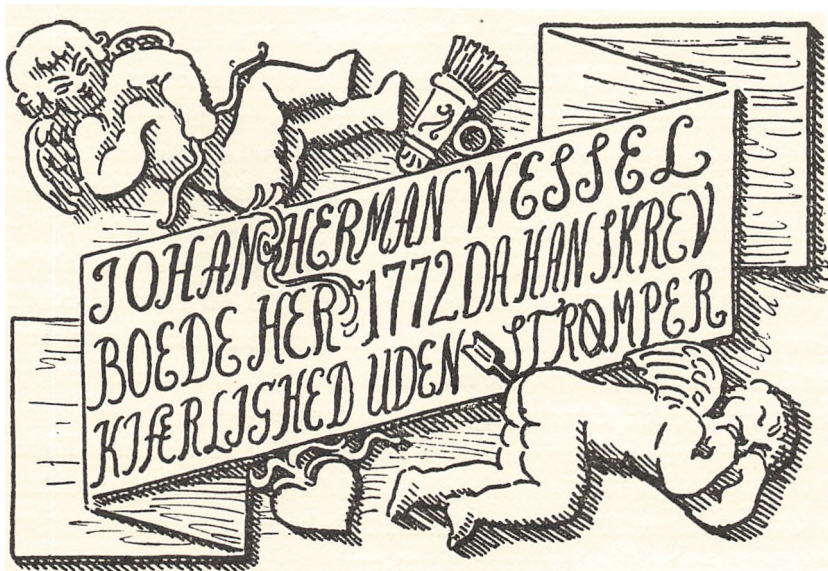 JOHAN HERMAN WESSEL
BOEDE HER 1772 DA HAN SKREV
KIÆRLIGHED UDEN STRØMPER